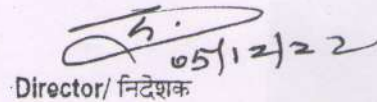 05/12/22
Director/ निदेशक